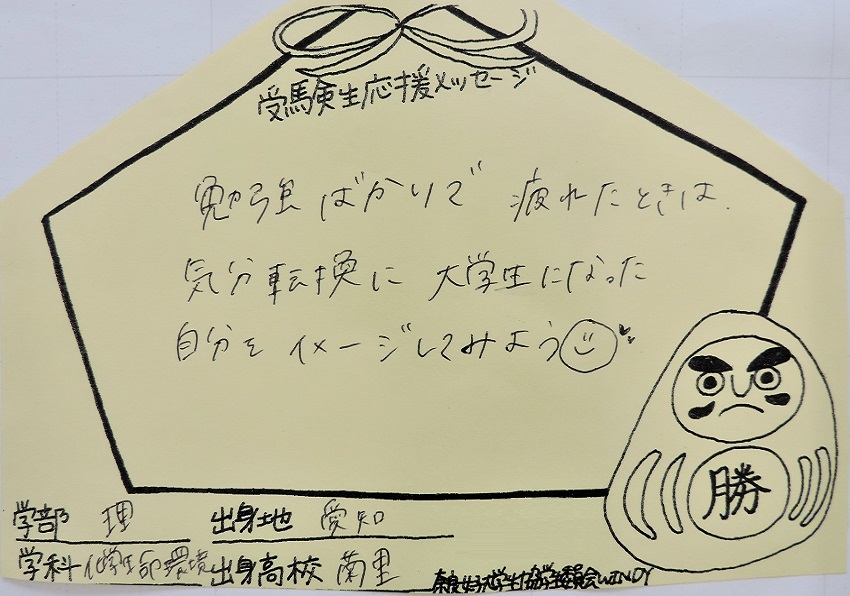 受験生応援メッセージ
勉強ばかりで 疲れたときは、
気分転換に 大学生になった
自分を イメージしてみよう
勝
学部 理 出身地 愛知
学科 化学生命環境 出身高校
奈良女子大学生協学生委員会WINDY